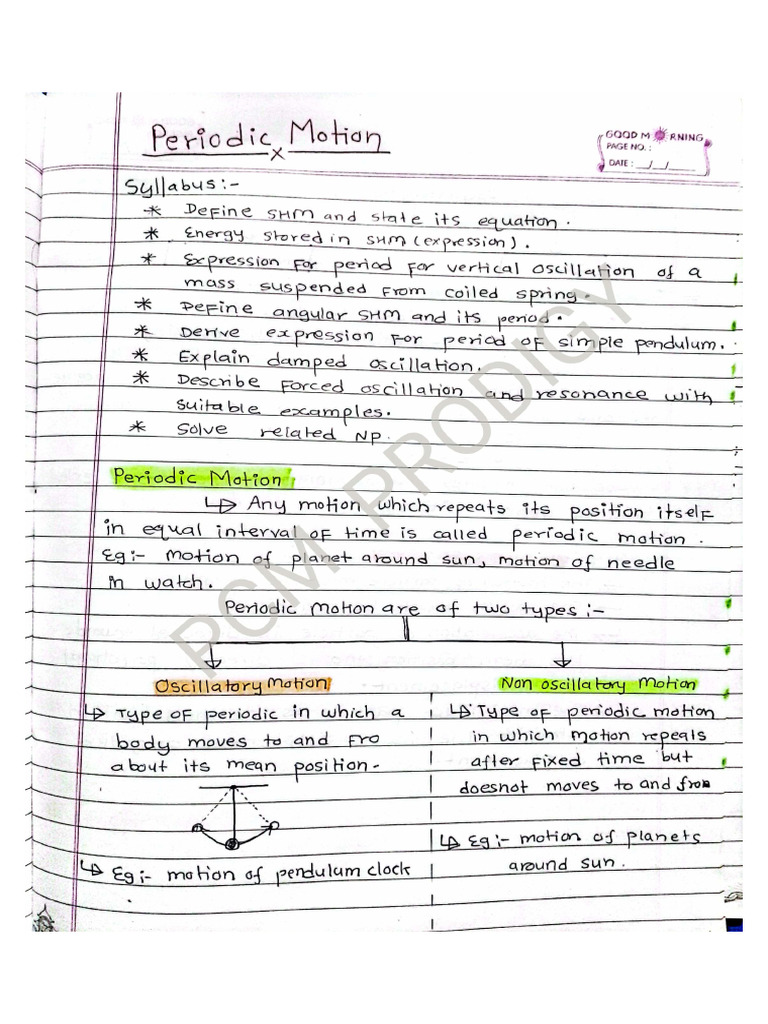 Periodic Motion
x
GOOD MORNING
PAGE NO. :
DATE : _/_/___
Syllabus:-
* Define SHM and state its equation.
* Energy stored in SHM (expression).
* Expression for period for vertical oscillation of a
mass suspended from coiled spring.
* Define angular SHM and its period.
* Derive expression for period of simple pendulum.
* Explain damped oscillation.
* Describe forced oscillation and resonance with
suitable examples.
* Solve related NP.
Periodic Motion
↳ Any motion which repeats its position itself
in equal interval of time is called periodic motion.
Eg:- motion of planet around sun, motion of needle
in watch.
Periodic motion are of two types:-
Oscillatory motion
↳ Type of periodic in which a
body moves to and fro
about its mean position.
↳ Eg:- motion of pendulum clock
Non oscillatory motion
↳ Type of periodic motion
in which motion repeals
after fixed time but
doesnot moves to and from
↳ Eg:- motion of planets
around sun.
PCM PRODIGY